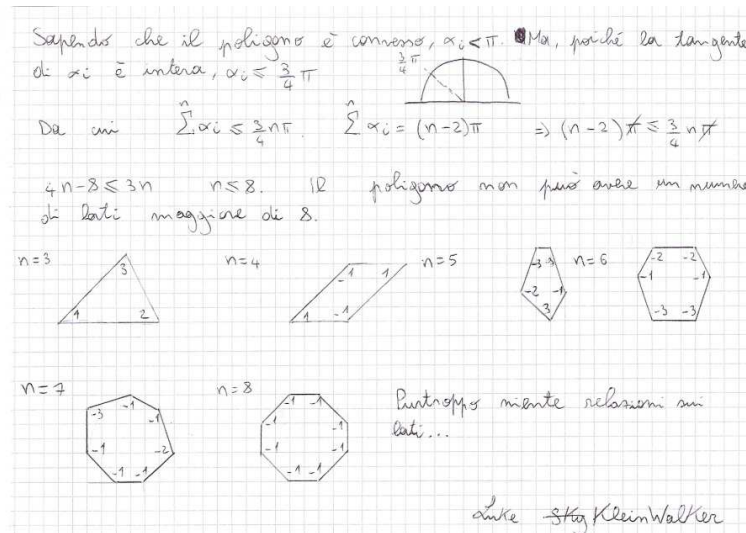 Sapendo che il poligono è convesso, αi < π. Ma, poiché la tangente
di αi è intera, αi ≤ 3/4 π
3/4 π
Da cui n Σ αi ≤ 3/4 nπ. n Σ αi = (n-2)π => (n-2)π ≤ 3/4 nπ
4n-8 ≤ 3n n ≤ 8. Il poligono non può avere un numero
di lati maggiore di 8.
n=3 3 1 2
n=4 -1 1 1 -1
n=5 -3 -3 -2 -1 3
n=6 -2 -2 -1 -1 -3 -3
n=7 -3 -1 -1 -1 -2 -1 -1
n=8 -1 -1 -1 -1 -1 -1 -1 -1
Purtroppo niente relazioni sui
lati...
Luke Sky KleinWalker